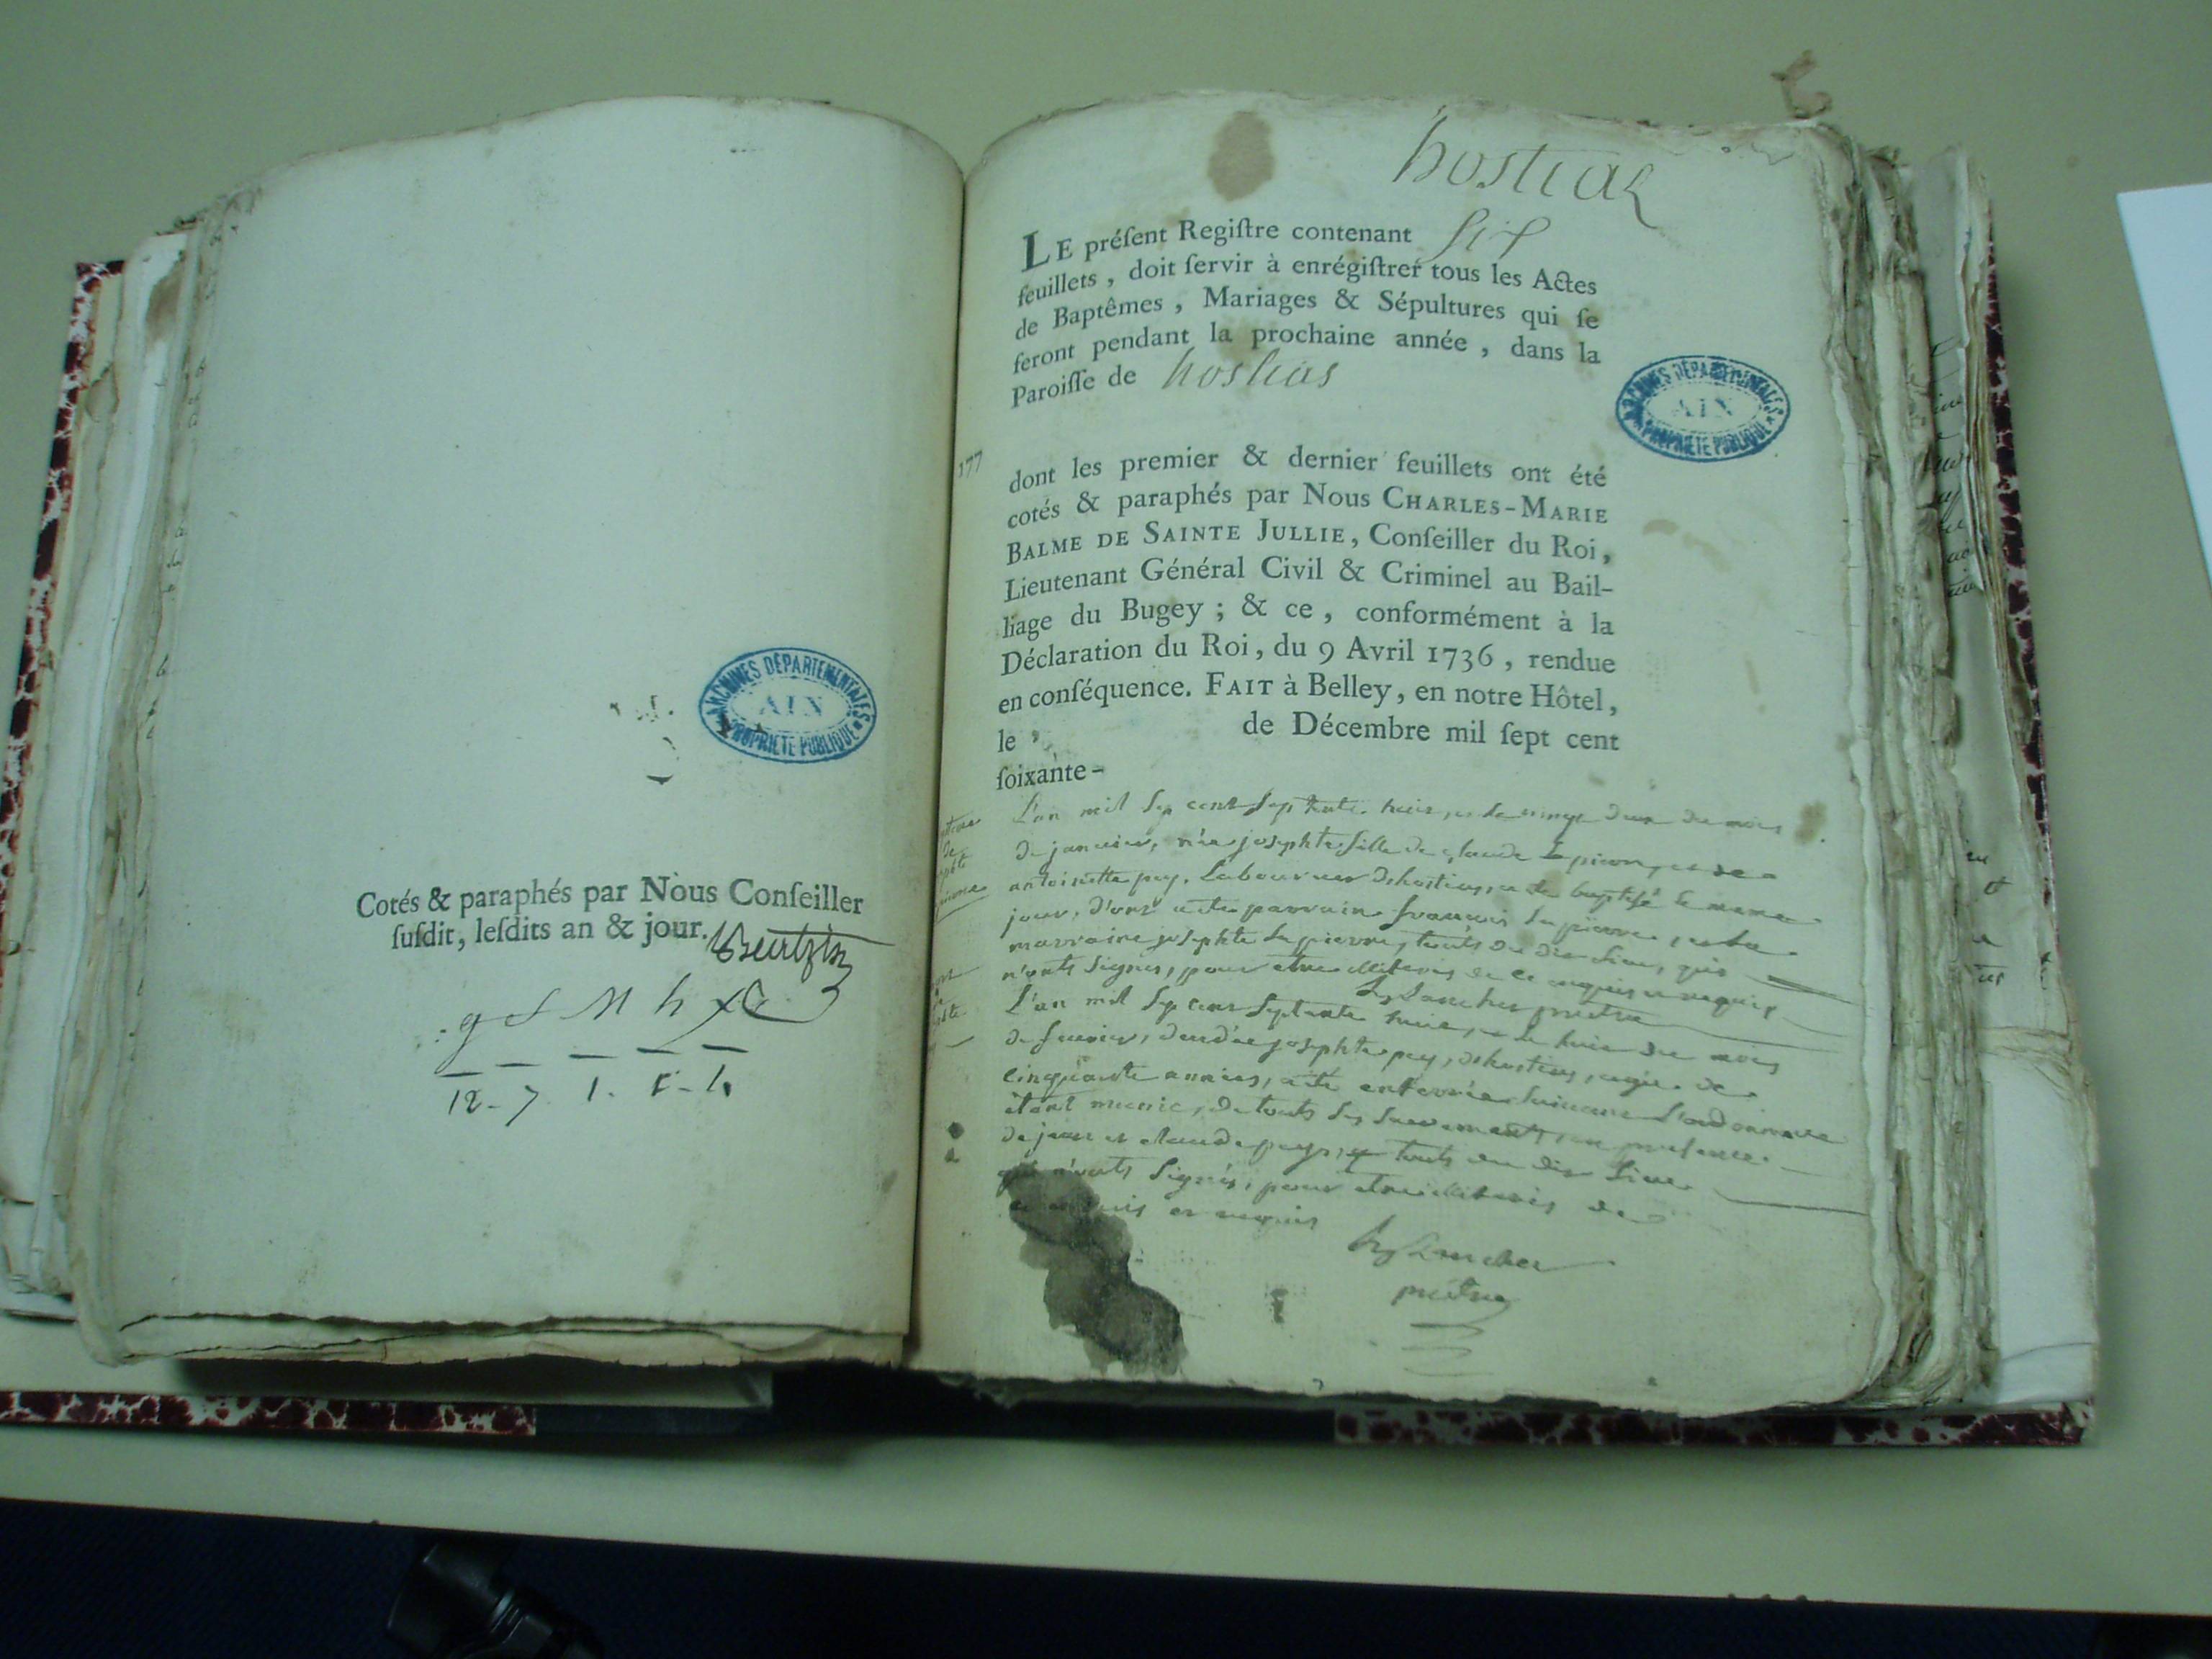 ARCHIVES DÉPARTEMENTALES
AIN
PROPRIÉTÉ PUBLIQUE
Cotés & paraphés par Nous Conſeiller
ſuſdit, leſdits an & jour.
hostiaz
LE préſent Regiſtre contenant six
feuillets, doit ſervir à enrégiſtrer tous les Actes
de Baptêmes, Mariages & Sépultures qui ſe
feront pendant la prochaine année, dans la
Paroiſſe de hostias
ARCHIVES DÉPARTEMENTALES
AIN
PROPRIÉTÉ PUBLIQUE
177
dont les premier & dernier feuillets ont été
cotés & paraphés par Nous CHARLES-MARIE
BALME DE SAINTE JULLIE, Conſeiller du Roi,
Lieutenant Général Civil & Criminel au Bail-
liage du Bugey; & ce, conformément à la
Déclaration du Roi, du 9 Avril 1736, rendue
en conſéquence. FAIT à Belley, en notre Hôtel,
le de Décembre mil ſept cent
ſoixante-
L'an mil sep cent septante huit, et le vingt deux du mois
de janvier, née josephte fille de claude lapierre, et de
antoinette pey, laboureur d'hostias, a été baptisé le meme
jour, d'ont a été parrain françois lapierre, et la
marraine josephte lapierre, touts du dit lieu, qui
n'onts signés, pour etre illiterés de ce enquis et requis
prêtre
L'an mil sep cent septante huit, et le huit du mois
de fevrier, josephte pey, d'hostias, agée de
cinquante années, a été enterrée suivant l'ordonnance
étant munie, de touts les sacrements, en presence
de jean et claude peys, touts du dit lieu
qui n'onts signés, pour etre illiterés de
ce enquis et requis
prêtre